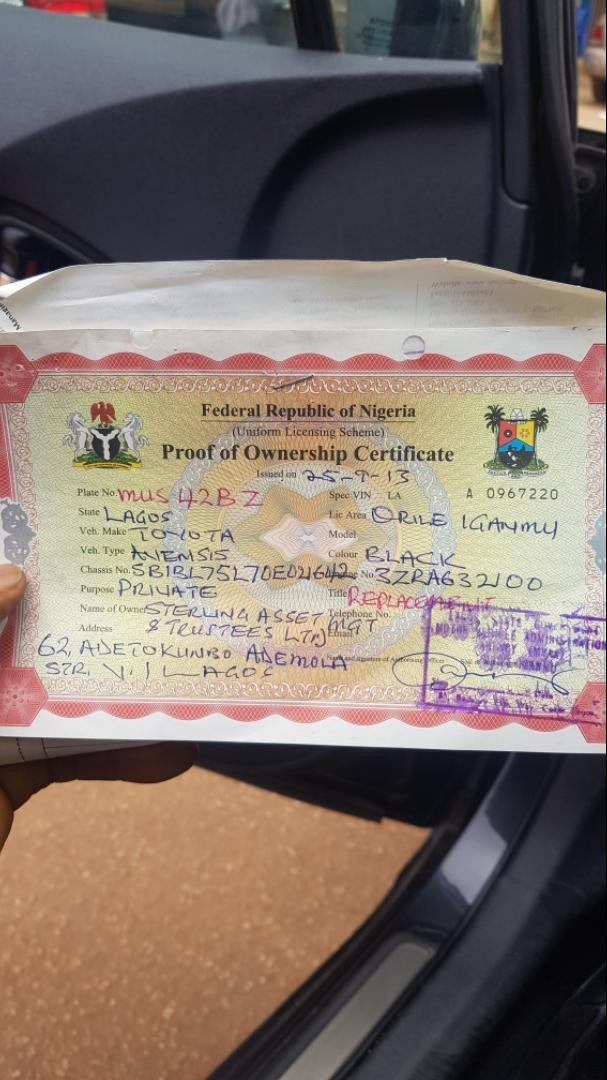 Federal Republic of Nigeria
(Uniform Licensing Scheme)
Proof of Ownership Certificate
Issued on 25-9-13
Plate No. MUS 42BZ Spec VIN LA A 0967220
State LAGOS Lic Area ORILE IGANMU
Veh. Make TOYOTA Model
Veh. Type AVENSIS Colour BLACK
Chassis No. SB1BL75L70E021642 No. 3ZRA632100
Purpose PRIVATE Title REPLACEMENT
Name of Owner STERLING ASSET MGT Telephone No.
Address & TRUSTEES LTD Email
62, ADETOKUNBO ADEMOLA
STR. V.I LAGOS
Name and signature of Authorising Officer